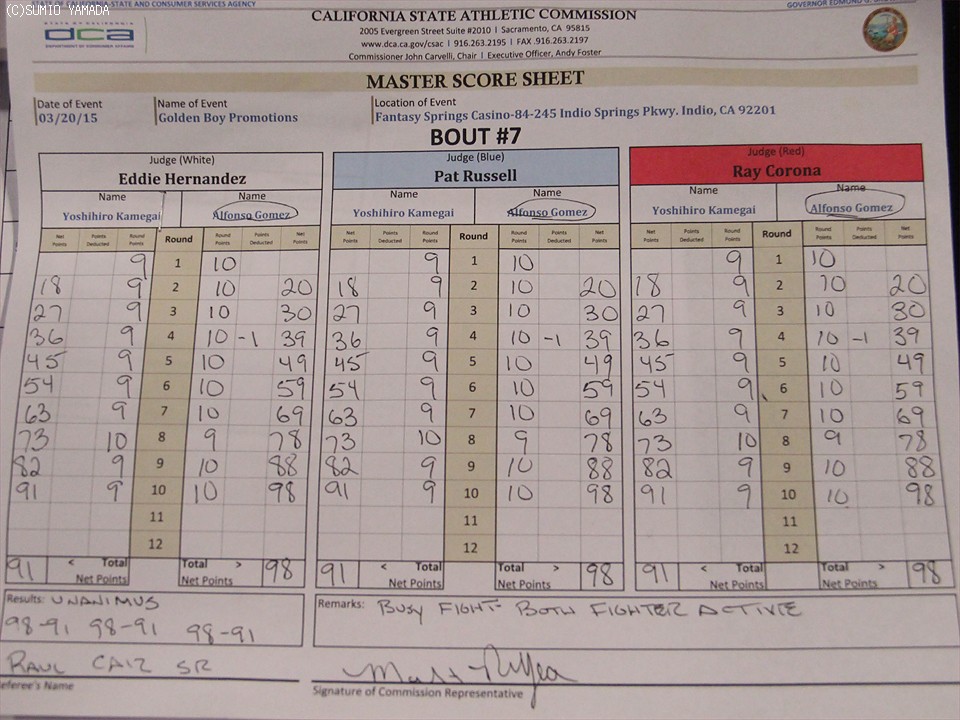 (C)SUMIO YAMADA
STATE AND CONSUMER SERVICES AGENCY
GOVERNOR EDMUND G.
STATE OF CALIFORNIA
dca
DEPARTMENT OF CONSUMER AFFAIRS
CALIFORNIA STATE ATHLETIC COMMISSION
2005 Evergreen Street Suite #2010 | Sacramento, CA 95815
www.dca.ca.gov/csac | 916.263.2195 | FAX .916.263.2197
Commissioner John Carvelli, Chair | Executive Officer, Andy Foster
MASTER SCORE SHEET
Date of Event Name of Event Location of Event
03/20/15 Golden Boy Promotions Fantasy Springs Casino-84-245 Indio Springs Pkwy. Indio, CA 92201
BOUT #7
Judge (White) Judge (Blue) Judge (Red)
Eddie Hernandez Pat Russell Ray Corona
Name Name Name Name Name Name
Yoshihiro Kamegai Alfonso Gomez Yoshihiro Kamegai Alfonso Gomez Yoshihiro Kamegai Alfonso Gomez
Net Points Points Deducted Round Points Round Round Points Points Deducted Net Points Net Points Points Deducted Round Points Round Round Points Points Deducted Net Points Net Points Points Deducted Round Points Round Round Points Points Deducted Net Points
9 1 10 9 1 10 9 1 10
18 9 2 10 20 18 9 2 10 20 18 9 2 10 20
27 9 3 10 30 27 9 3 10 30 27 9 3 10 30
36 9 4 10 -1 39 36 9 4 10 -1 39 36 9 4 10 -1 39
45 9 5 10 49 45 9 5 10 49 45 9 5 10 49
54 9 6 10 59 54 9 6 10 59 54 9 6 10 59
63 9 7 10 69 63 9 7 10 69 63 9 7 10 69
73 10 8 9 78 73 10 8 9 78 73 10 8 9 78
82 9 9 10 88 82 9 9 10 88 82 9 9 10 88
91 9 10 10 98 91 9 10 10 98 91 9 10 10 98
11 11 11
12 12 12
91 < Total Net Points Total > Net Points 98 91 < Total Net Points Total > Net Points 98 91 < Total Net Points Total > Net Points 98
Results: UNANIMUS
98-91 98-91 98-91
Remarks: BUSY FIGHT- BOTH FIGHTER ACTIVE
RAUL CAIZ SR
eferee's Name
Signature of Commission Representative